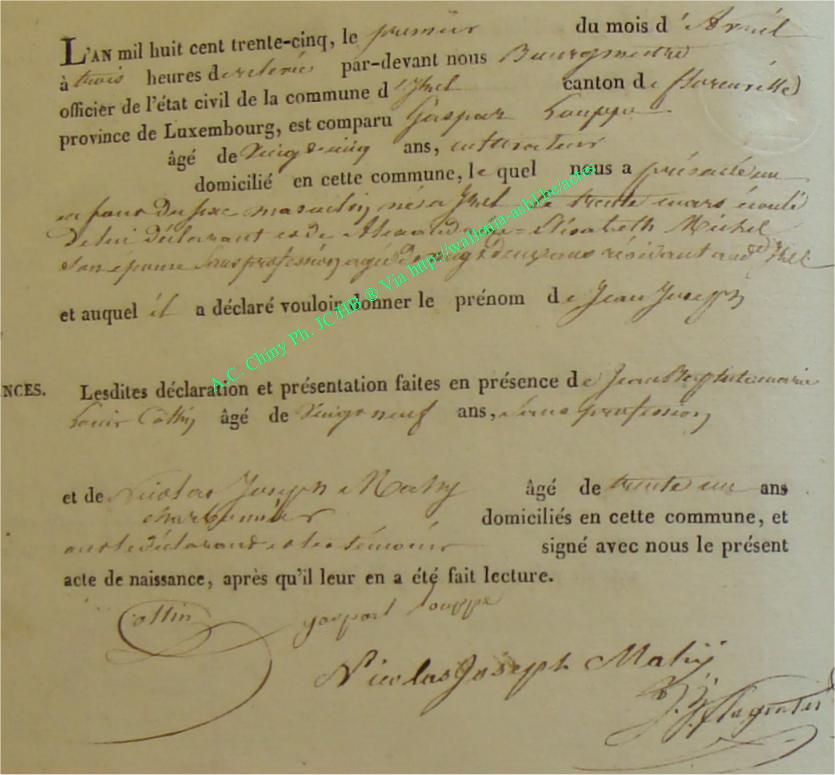 L'AN mil huit cent trente-cinq, le premier du mois d'Avril
à trois heures de relevée par-devant nous Bourgmestre
officier de l'état civil de la commune d'Izel canton de florenville
province de Luxembourg, est comparu Gaspar Louppe
âgé de vingt cinq ans, cultivateur
domicilié en cette commune, le quel nous a présenté un
enfant du sexe masculin né à Izel le trente mars écoulé
de lui déclarant et de Elisabeth Michel
son épouse sans profession agée de vingt deux ans résidant audit Izel
et auquel il a déclaré vouloir donner le prénom de Jean Joseph
A.C. Chiny Ph. JC.HB ® Via http://wallonia-asbl.be/actes
NCES. Lesdites déclaration et présentation faites en présence de Jean Baptiste marie
Louis Collin âgé de vingt neuf ans, sans profession
et de Nicolas Joseph Mathy âgé de trente un ans
charbonnier domiciliés en cette commune, et
ont le déclarant et les témoins signé avec nous le présent
acte de naissance, après qu'il leur en a été fait lecture.
Collin gaspard Louppe
Nicolas Joseph Mathÿ